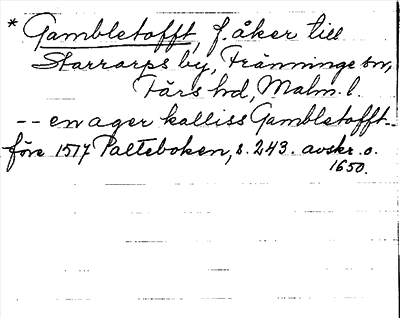 * Gambletofft, f. åker till
Starrarps by, Tränninge sn,
Färs hd, Malm. l.
-- en ager kalliss Gambletofft--
före 1517 Palteboken, s. 243. avskr. o.
1650.